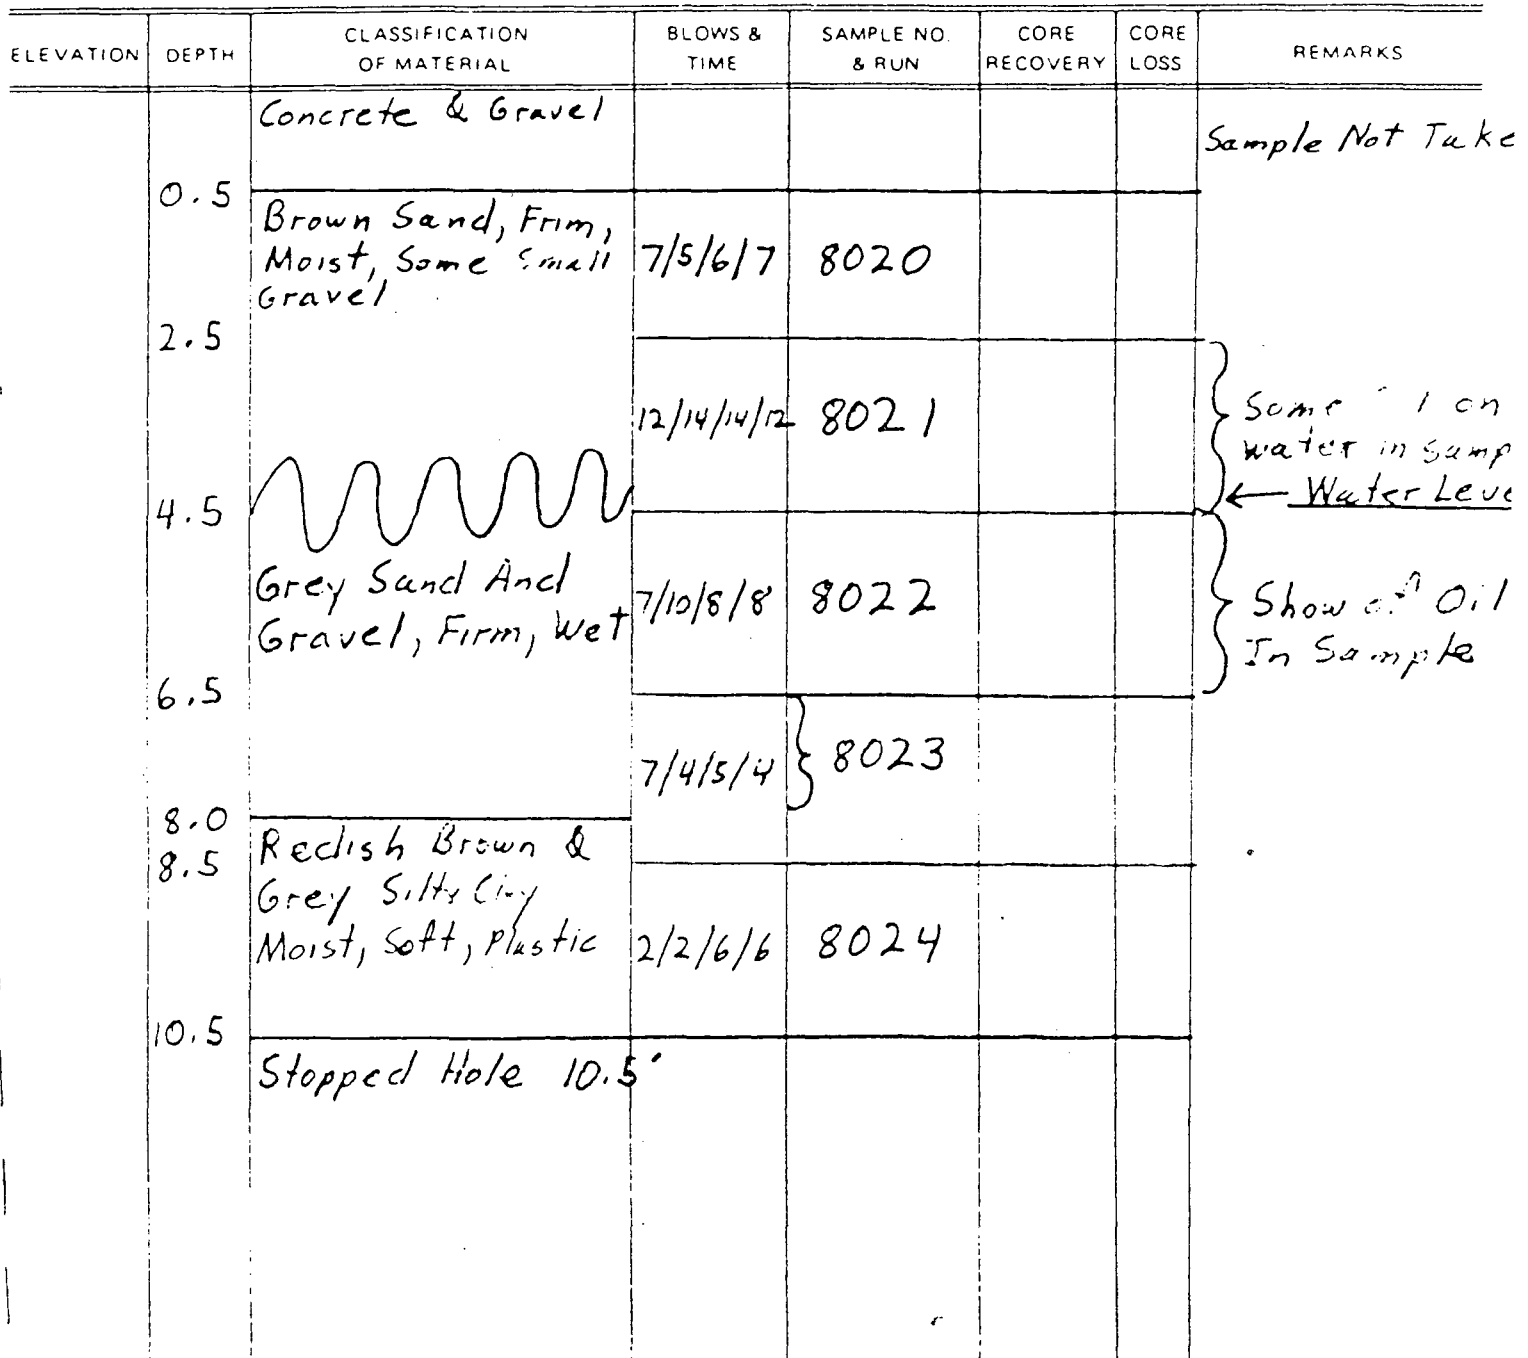 ELEVATION DEPTH CLASSIFICATION OF MATERIAL BLOWS & TIME SAMPLE NO. & RUN CORE RECOVERY CORE LOSS REMARKS
Concrete & Gravel
Sample Not Take
0.5
Brown Sand, Frim,
Moist, Some Small
Gravel
7/5/6/7 8020
2.5
12/14/14/12 8021
Some on
water in Samp
Water Leve
4.5
Grey Sand And
Gravel, Firm, Wet
7/10/8/8 8022
Show of Oil
In Sample
6.5
7/4/5/4 8023
8.0
8.5
Redish Brown &
Grey Silty Clay
Moist, Soft, Plastic
2/2/6/6 8024
10.5
Stopped Hole 10.5'